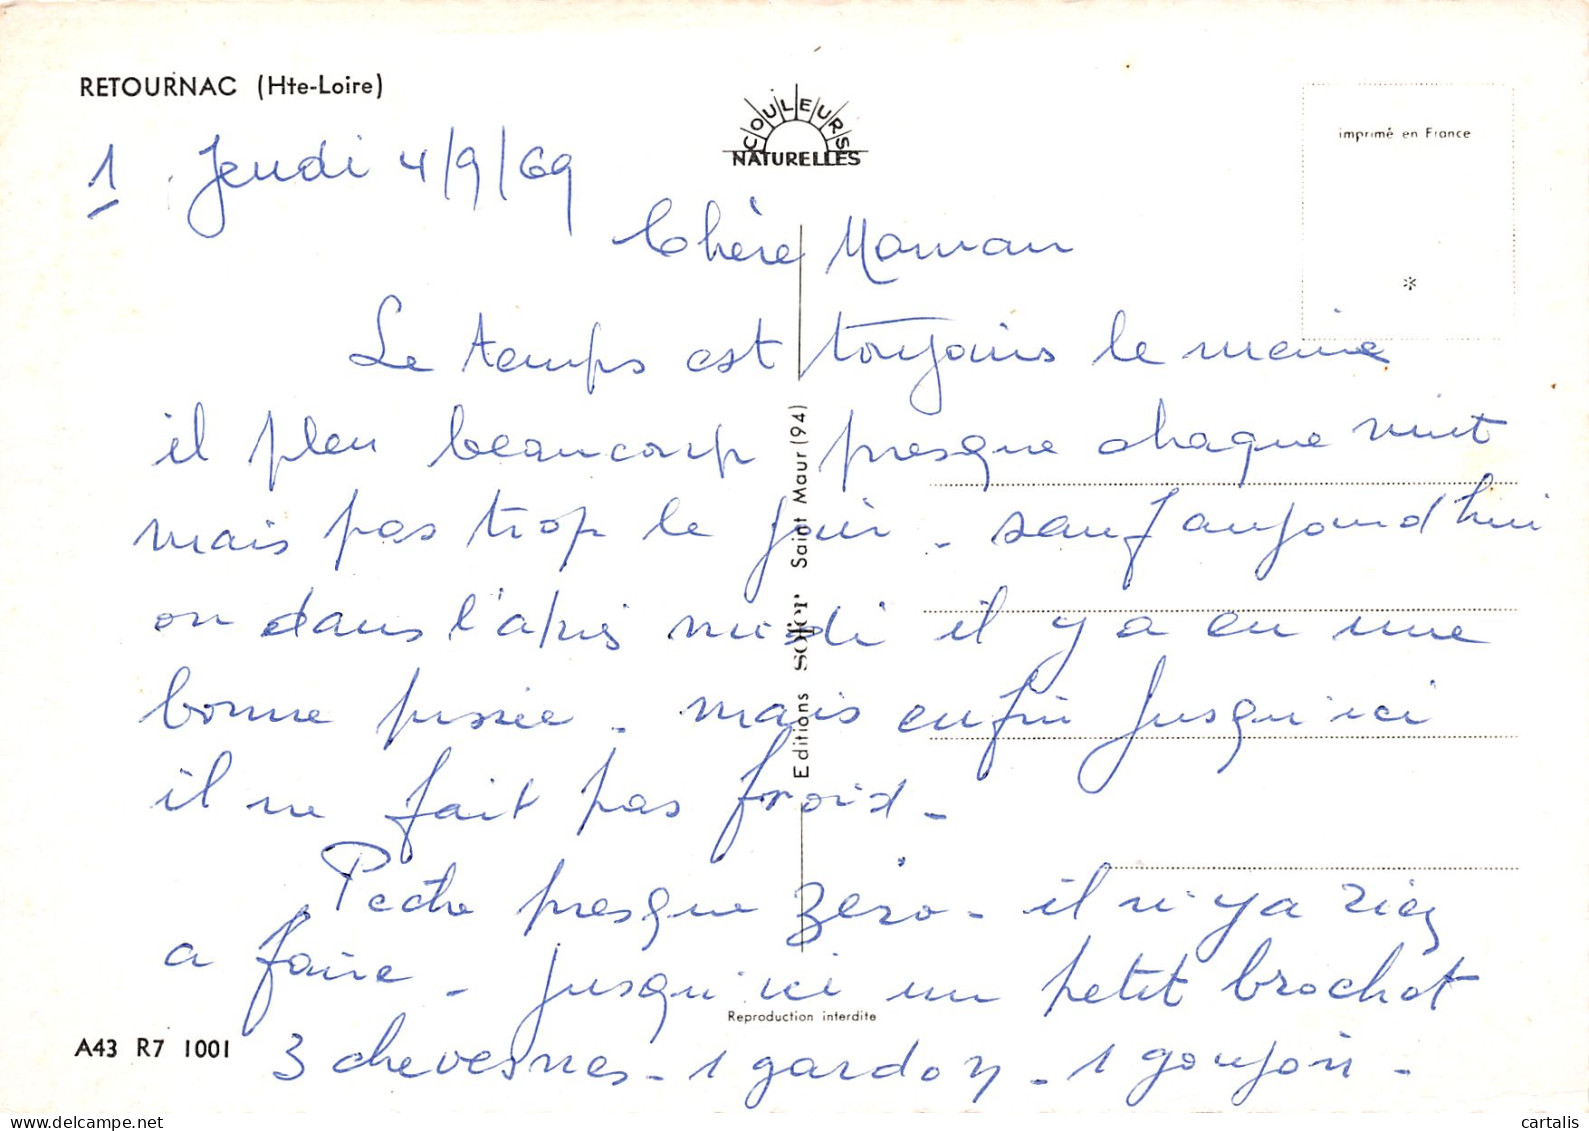 RETOURNAC (Hte-Loire)
COULEURS
NATURELLES
imprimé en France
*
1 Jeudi 4/9/69
Chère Maman
Le temps est toujours le meme
il pleu beaucoup presque chaque nuit
mais pas trop le jour - sauf aujourd'hui
on dans l'après midi il y a eu une
bonne pissée - mais enfin jusqu'ici
il ne fait pas froid -
Peche presque zéro - il n'y a rien
a faire - jusqu'ici un petit brochet
3 chevesnes - 1 gardon - 1 goujon -
Editions soler Saint Maur (94)
Reproduction interdite
A43 R7 1001
cartalis
delcampe.net